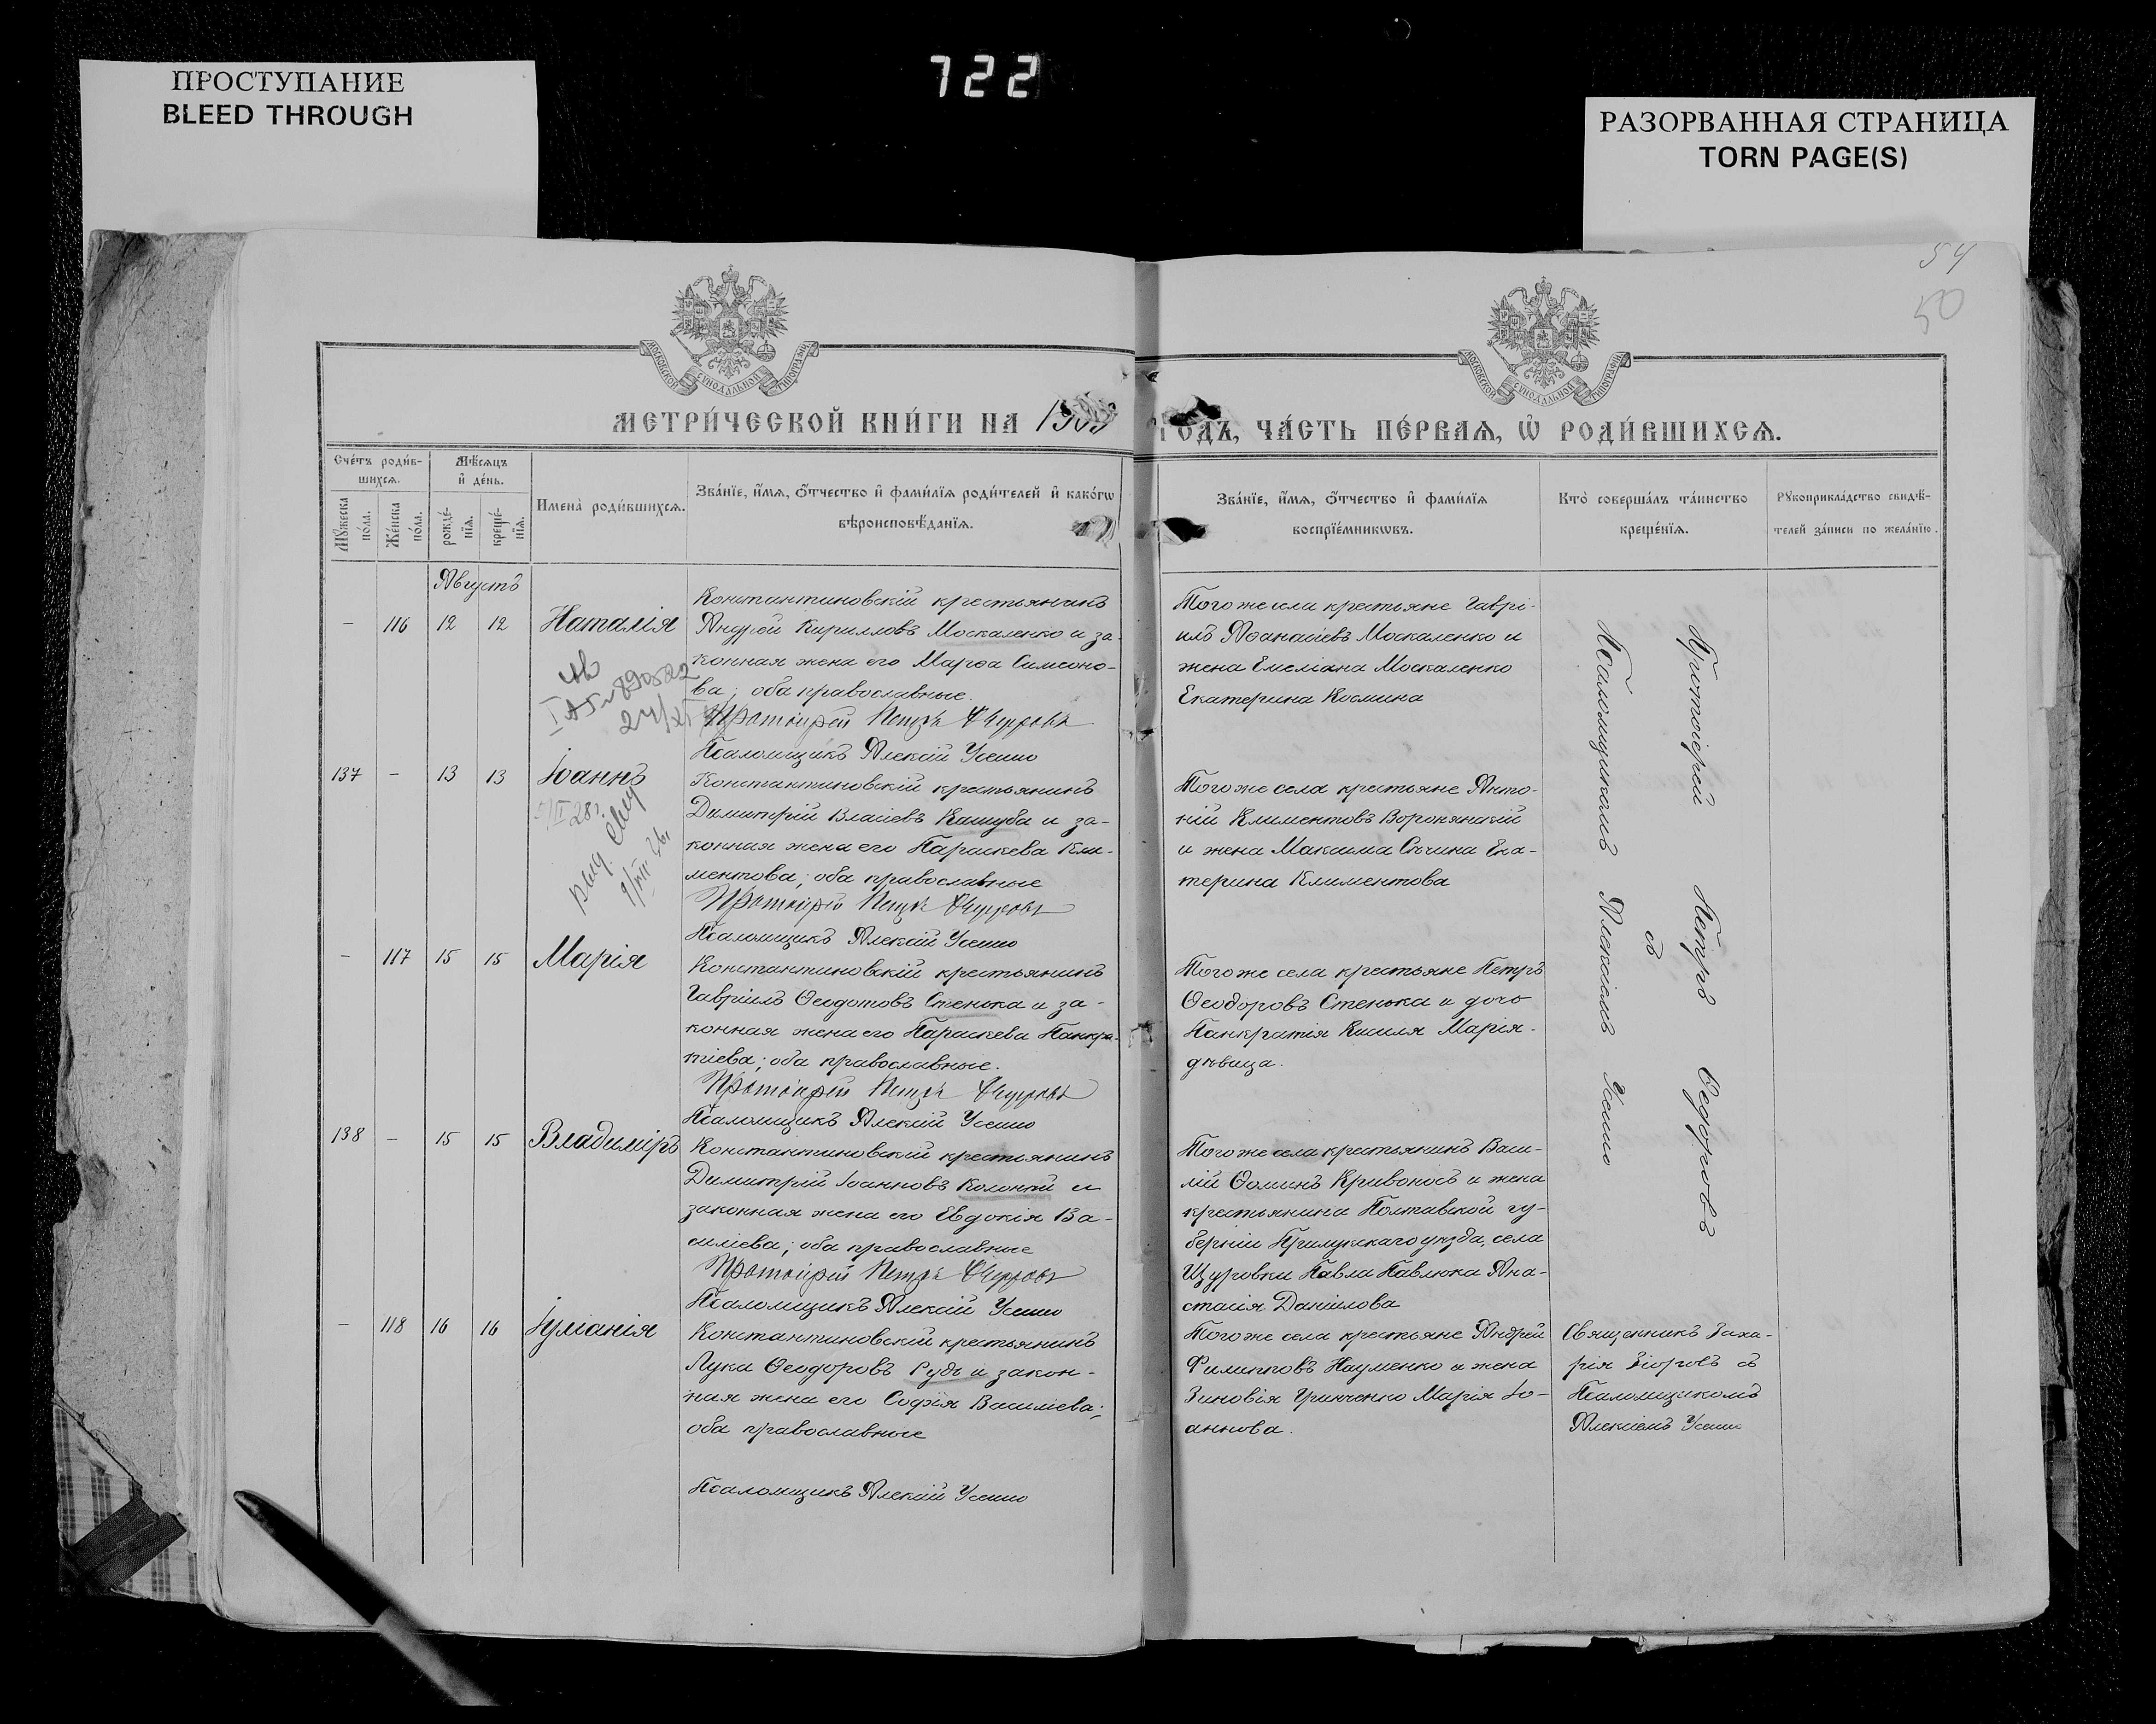 722
ПРОСТУПАНИЕ
BLEED THROUGH
РАЗОРВАННАЯ СТРАНИЦА
TORN PAGE(S)
54
50
МОСКОВСКОЙ СѴНОДАЛЬНОЙ ТИПОГРАФІИ
МОСКОВСКОЙ СѴНОДАЛЬНОЙ ТИПОГРАФІИ
МЕТРИ́ЧЕСКОЙ КНИ́ГИ НА 1909 ГОДЪ, ЧА́СТЬ ПЕ́РВАѦ, Ѡ҆ РОДИ́ВШИХСѦ.
Сче́тъ роди́в-
шихсѧ.
Мꙋ́жеска по́ла.
Же́нска по́ла.
Мѣ́сѧцъ
и҆ де́нь.
рожде́-
нїѧ.
креще́-
нїѧ.
Имена̀ роди́вшихсѧ.
Зва́нїе, и҆́мѧ, ѻ҆́тчество и҆ фами́лїѧ роди́телей и҆ како́гѡ
вѣроисповѣ́данїѧ.
Зва́нїе, и҆́мѧ, ѻ҆́тчество и҆ фами́лїѧ
воспрїе́мникѡвъ.
Кто̀ соверша́лъ та́инство
креще́нїѧ.
Рꙋкоприкла́дство свидѣ́-
телей за́писи по жела́нїю.
Августъ
— 116 12 12 Наталія
Константиновскій крестьянинъ
Андрей Кирилловъ Москаленко и за-
конная жена его Марѳа Симеоно-
ва; оба православные.
Протоіерей Петръ Ѳедоровъ
Псаломщикъ Алексій Усенко
Того же села крестьяне Гаврі-
илъ Аѳанасіевъ Москаленко и
жена Емеліана Москаленко
Екатерина Космина
137 — 13 13 Іоаннъ
Константиновскій крестьянинъ
Димитрій Власіевъ Кашуба и за-
конная жена его Параскева Кли-
ментова; оба православные
Протоіерей Петръ Ѳедоровъ
Псаломщикъ Алексій Усенко
Того же села крестьяне Анто-
ній Климентовъ Воронянскій
и жена Максима Сычина Ека-
терина Климентова
— 117 15 15 Марія
Константиновскій крестьянинъ
Гавріилъ Ѳеодотовъ Стенька и за-
конная жена его Параскева Панкра-
тіева; оба православные.
Протоіерей Петръ Ѳедоровъ
Псаломщикъ Алексій Усенко
Того же села крестьяне Петръ
Ѳеодоровъ Стенька и дочь
Панкратія Кисиля Марія-
дѣвица.
138 — 15 15 Владиміръ
Константиновскій крестьянинъ
Димитрій Іоанновъ Колонтай и
законная жена его Евдокія Ва-
силіева; оба православные
Протоіерей Петръ Ѳедоровъ
Псаломщикъ Алексій Усенко
Того же села крестьянинъ Васи-
лій Ѳоминъ Кривоносъ и жена
крестьянина Полтавской гу-
берніи Прилукскаго уѣзда, села
Щуровки Павла Павлюка Ана-
стасія Даніилова
Протоіерей Петръ Ѳедоровъ
съ
Псаломщикомъ Алексіемъ Усенко
— 118 16 16 Іуліанія
Константиновскій крестьянинъ
Лука Ѳеодоровъ Рудь и закон-
ная жена его Софія Василіева;
оба православные
Псаломщикъ Алексій Усенко
Того же села крестьяне Андрей
Филипповъ Науменко и жена
Зиновія Гринченко Марія Іо-
аннова.
Священникъ Заха-
рія съ
Псаломщикомъ
Алексіемъ Усенко